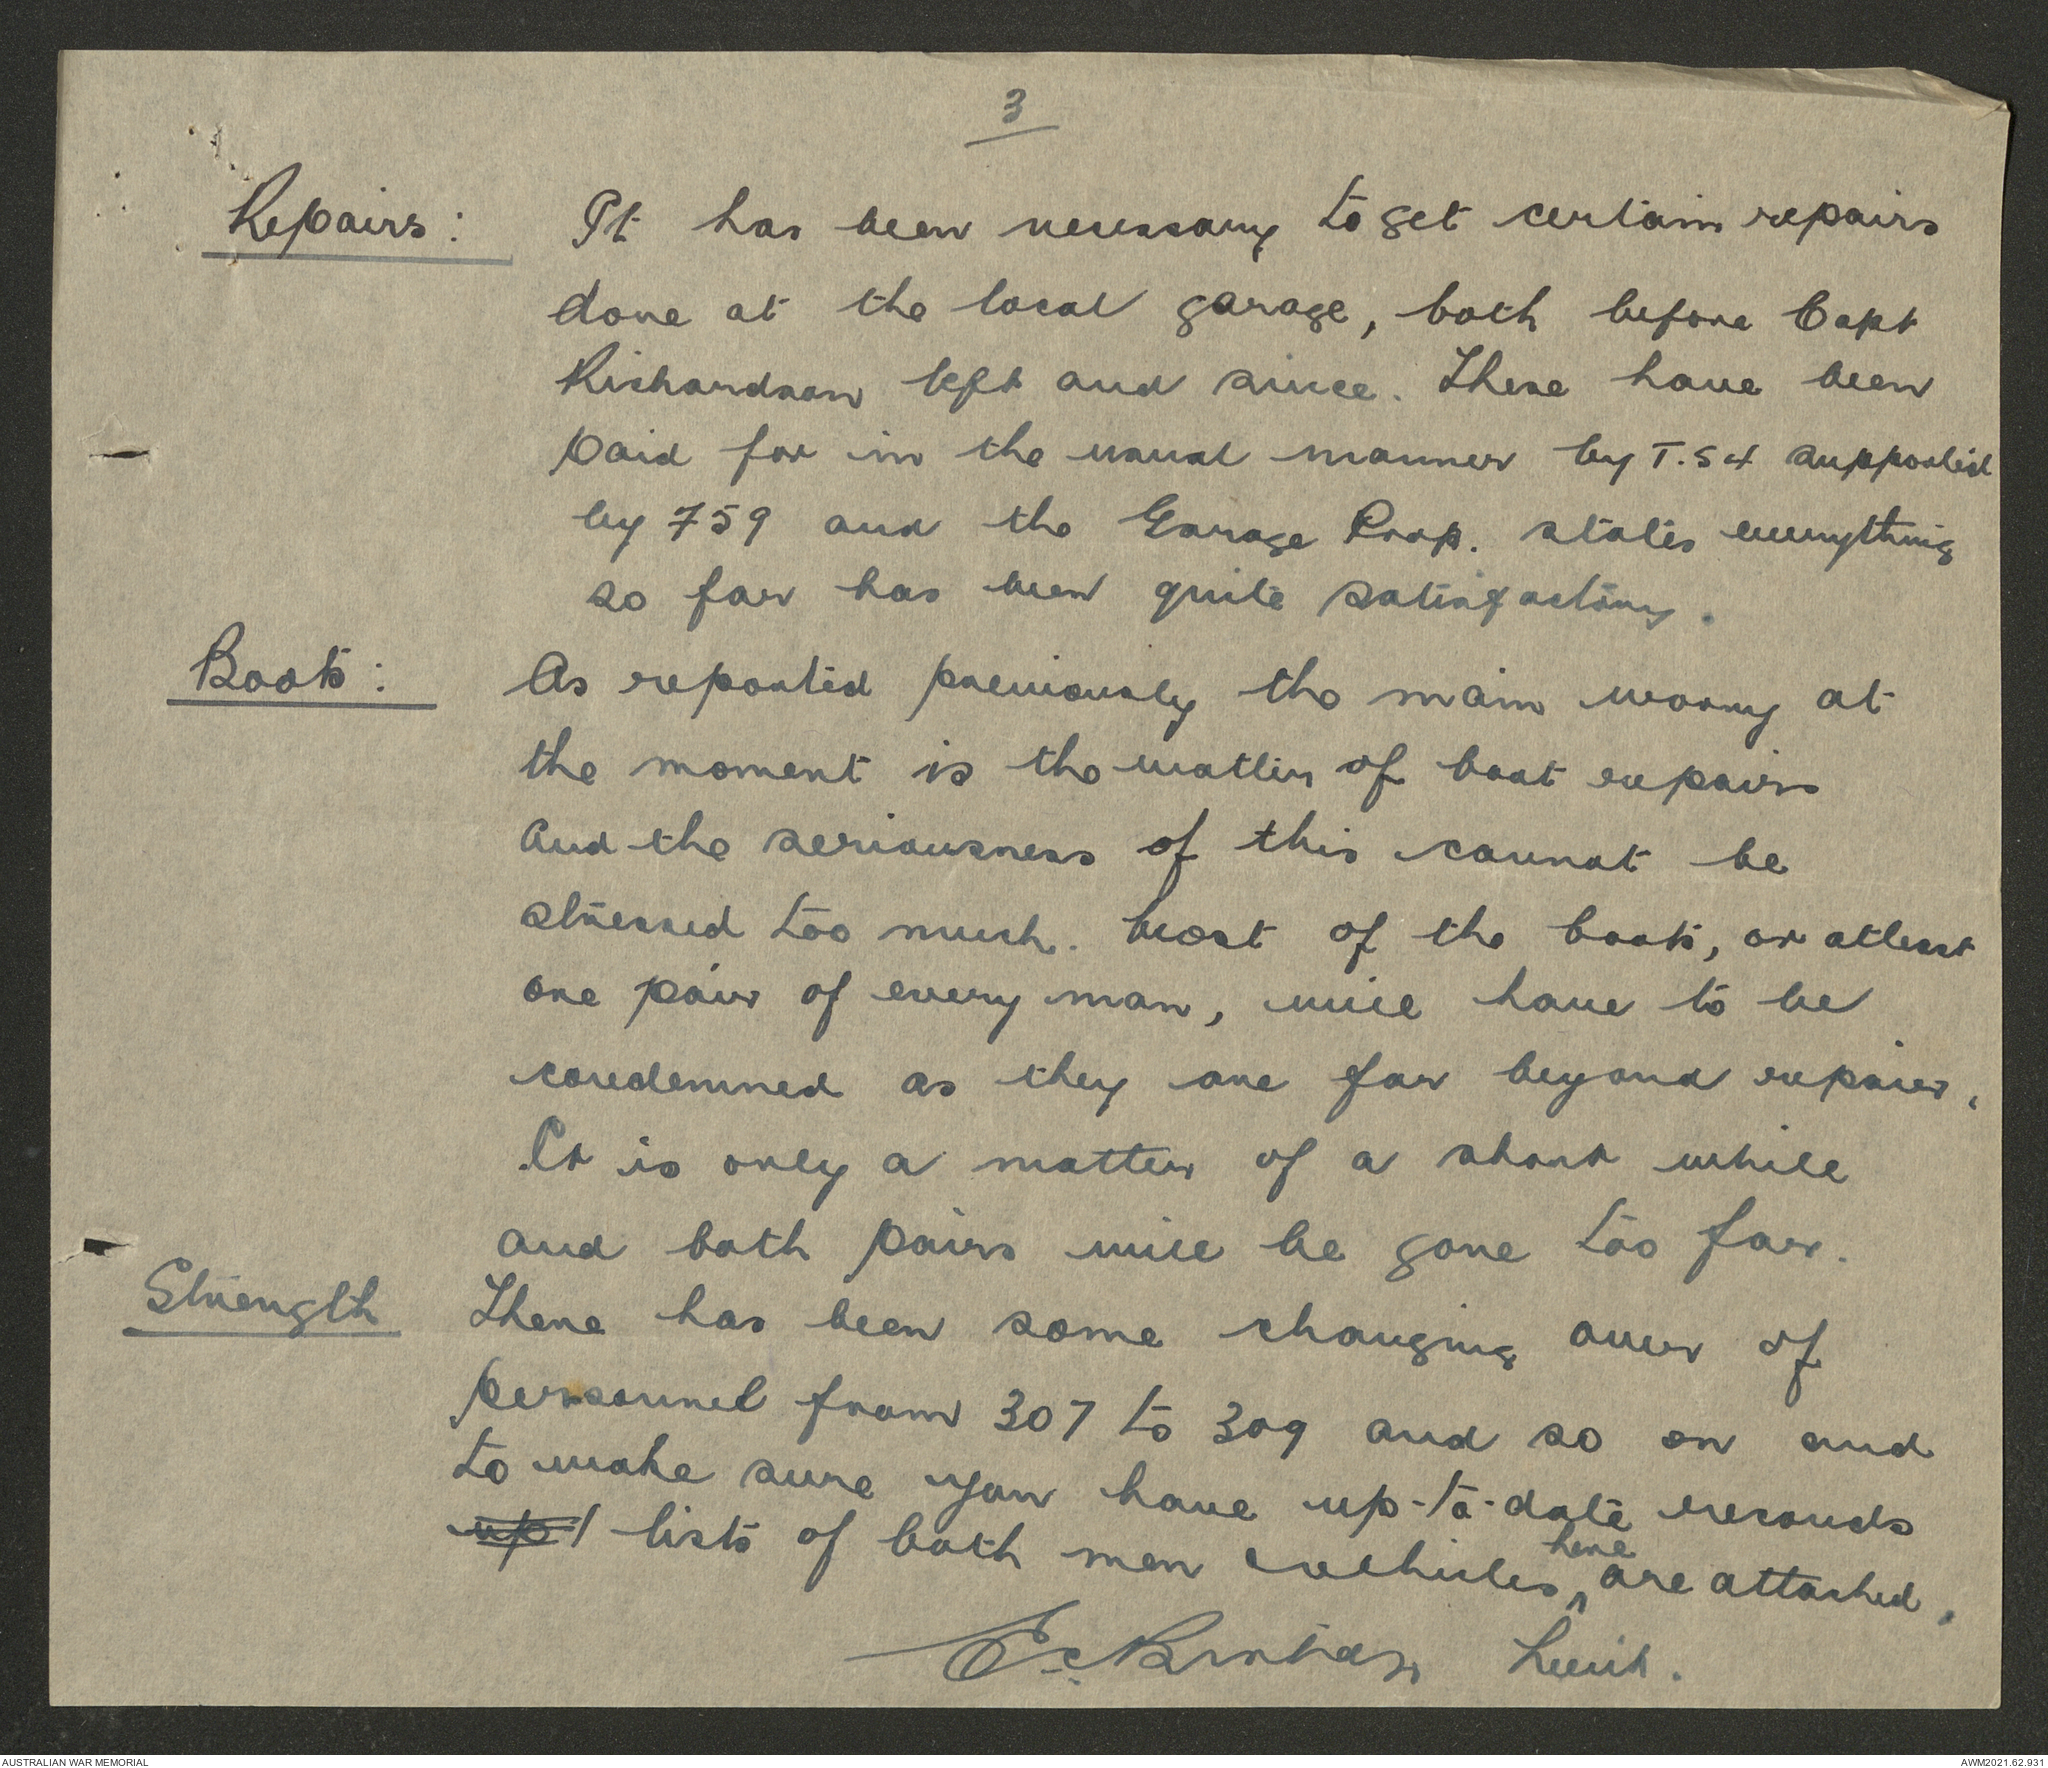 3
Repairs: It has been necessary to get certain repairs
done at the local garage, both before Capt
Richardson left and since. These have been
paid for in the usual manner by T.54 supported
by 759 and the Garage Prop. states everything
so far has been quite satisfactory.
Boots: As reported previously the main worry at
the moment is the matter of boot repairs
and the seriousness of this cannot be
stressed too much. Most of the boots, or atleast
one pair of every man, will have to be
condemned as they are far beyond repair.
It is only a matter of a short while
and both pairs will be gone too far.
Strength There has been some changing over of
personnel from 307 to 309 and so on and
to make sure you have up-to-date records
up lists of both men & vehicles, here are attached.
Lieut.
AUSTRALIAN WAR MEMORIAL
AWM2021.62.931